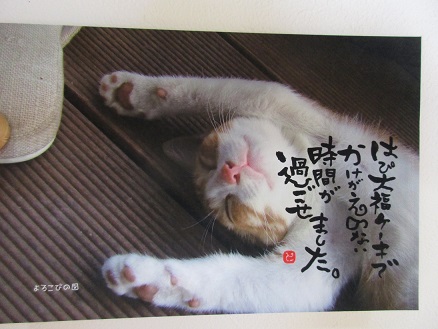 はぴ大福ケーキで
かけがえのない
時間が
過ごせ
ました。
よろこびの図